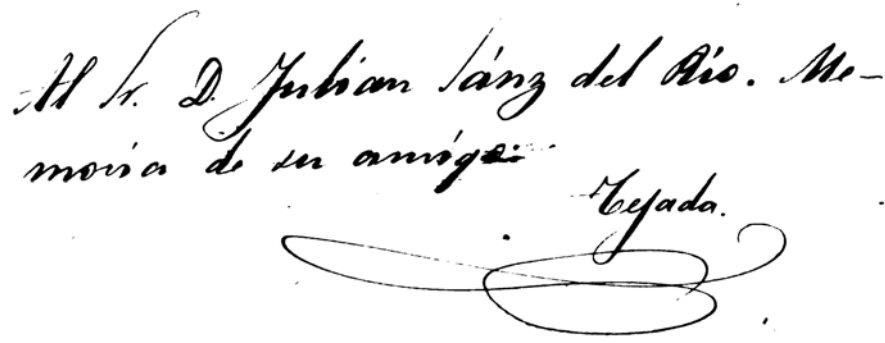 Al Sr. D. Julian Sánz del Río. Me-
moria de su amigo
Tejada.